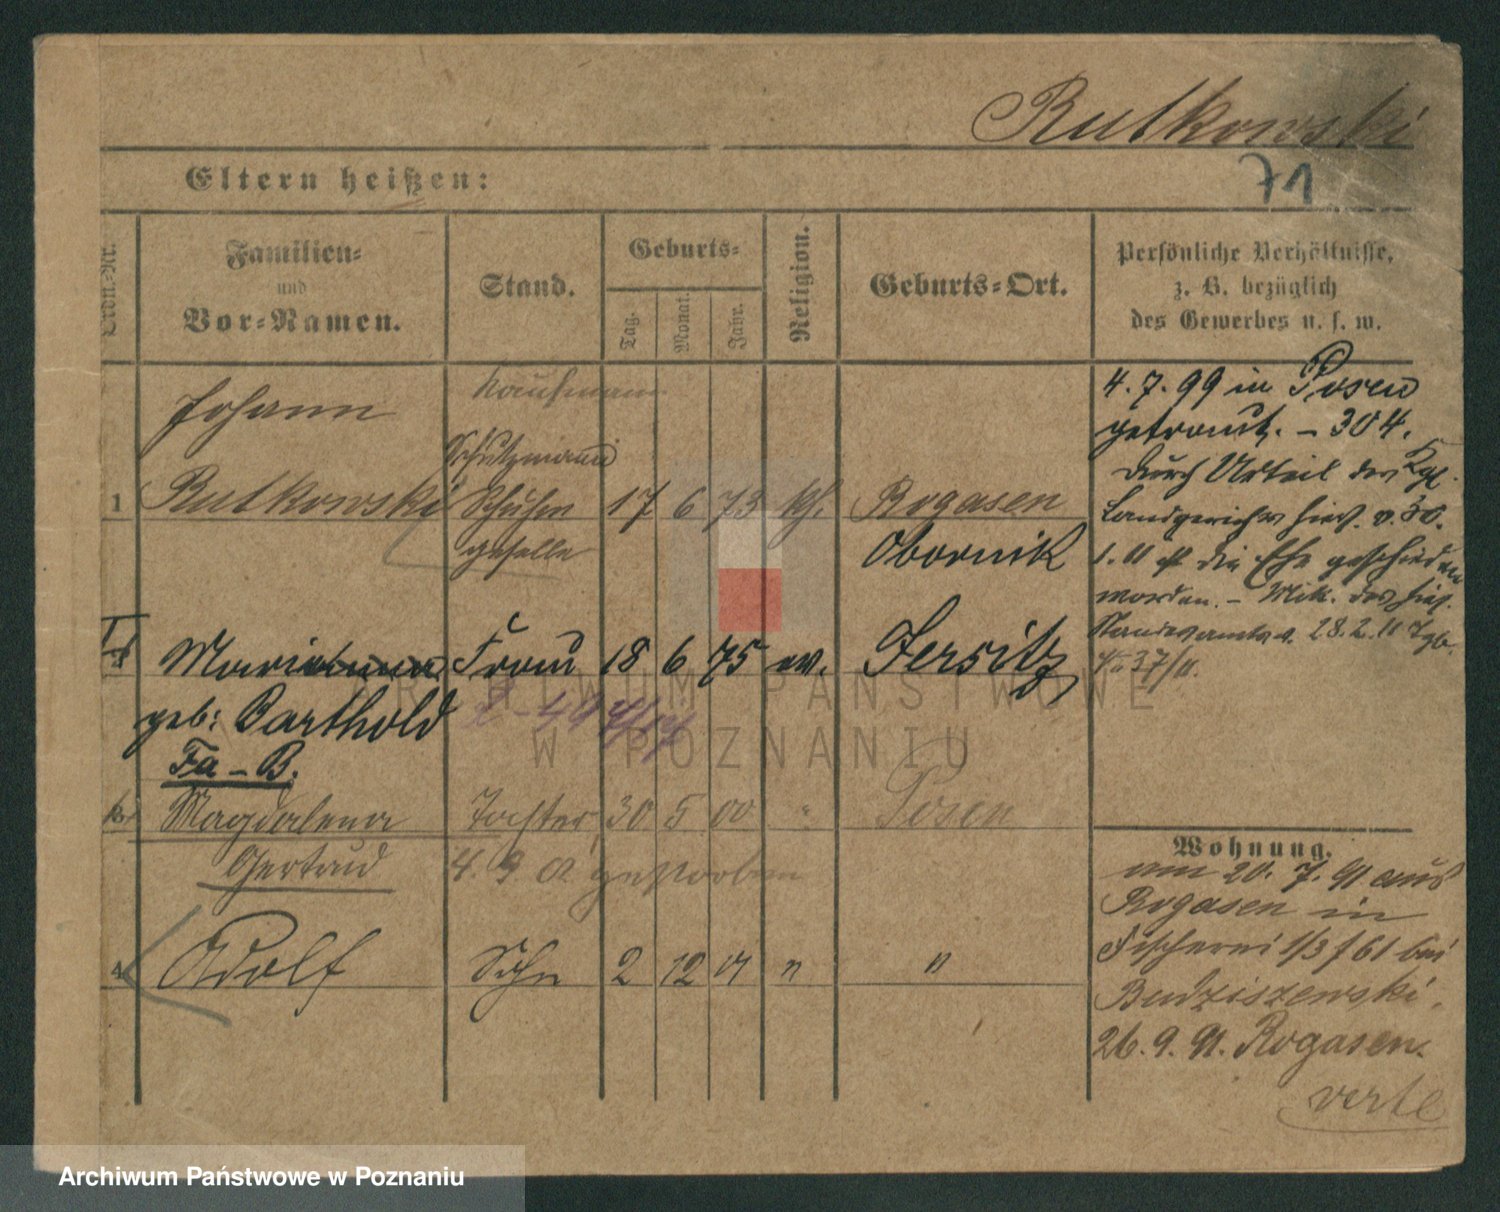 Rutkowski
71
Eltern heißen:
Ordn.-Nr.
Familien-
und
Vor-Namen.
Stand.
Geburts-
Tag.
Monat.
Jahr.
Religion.
Geburts-Ort.
Persönliche Verhältnisse,
z. B. bezüglich
des Gewerbes u. s. w.
Kaufmann
Johann
Schutzmann
1 Rutkowski 17 6 73 kth. Rogasen
geselle Obornik
4. 7. 99 in Posen
getraut. – 304.
Durch Urteil des Kgl.
Landgerichts hies. v. 30.
1. 11 ist die Ehe geschieden
worden. – Mitt. des hies.
Standesamts v. 28.2.11 Tgb.
No 37/11.
Frau 18 6 75 ev. Jersitz
geb: Barthold
Fa – B.
Magdalena Tochter 30 5 00 " Posen
Gertrud 4. 9. 01 gestorben
4 Adolf Sohn 2 12 01 " "
Wohnung.
am 20. 7. 91 aus
Rogasen in
Fischerei 1/3 f 61 bei
Budziszewski.
26. 9. 91. Rogasen.
verte
ARCHIWUM PAŃSTWOWE
W POZNANIU
Archiwum Państwowe w Poznaniu